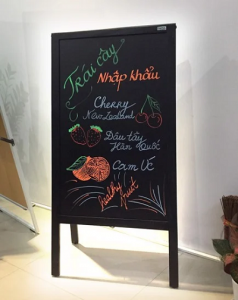 Trái cây
Nhập Khẩu
Cherry
New Zealand
Dâu tây
Hàn Quốc
Cam Úc
healthy
fruit